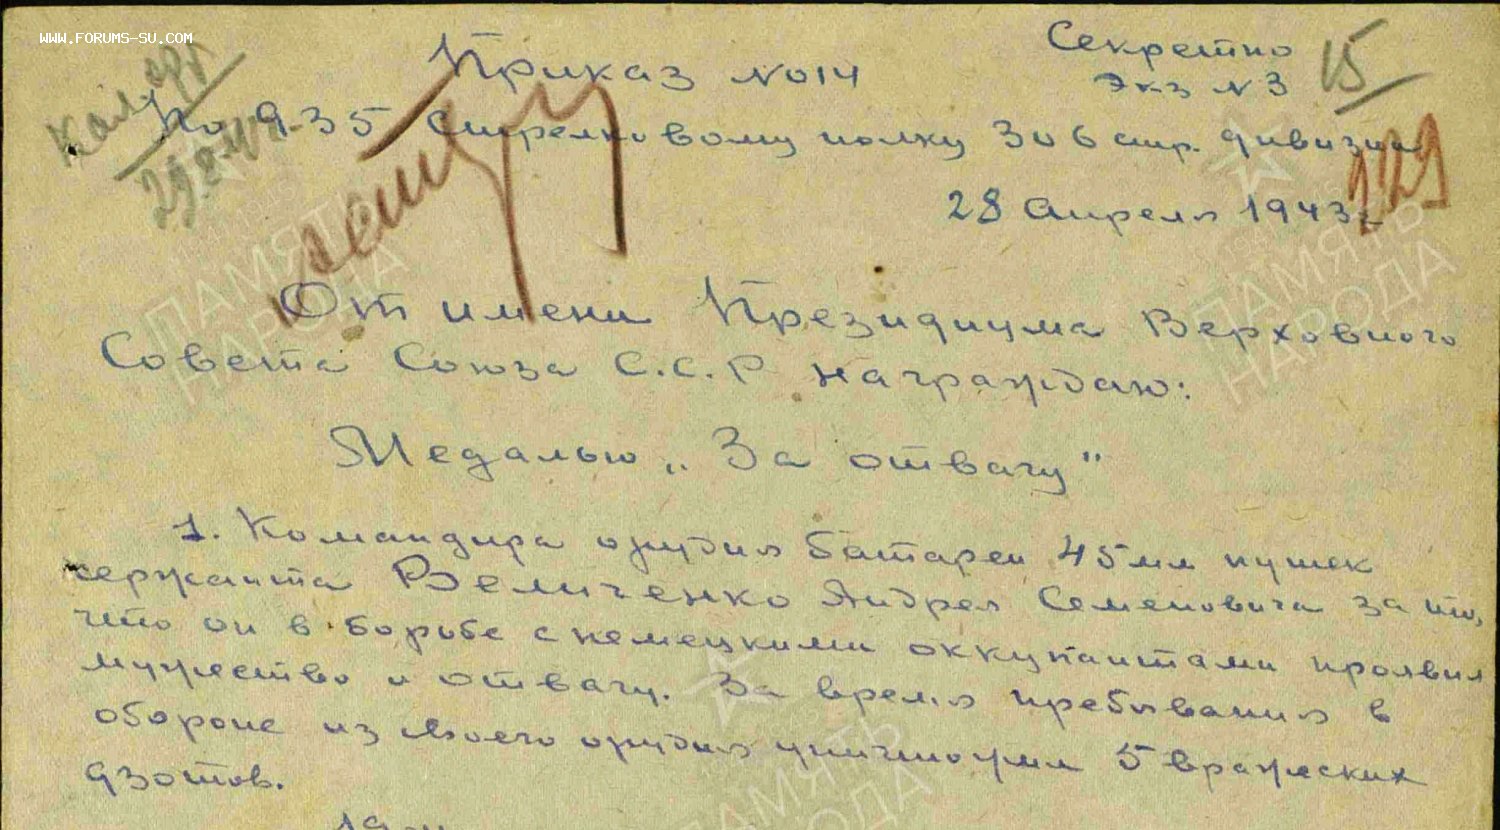 WWW.FORUMS-SU.COM
Секретно
Приказ №014
Экз №3
15
По 935 Стрелковому полку 306 стр. дивизии
129
28 апреля 1943 г
От имени Президиума Верховного
Совета Союза С.С.Р награждаю:
Медалью „За отвагу"
1. Командира орудия батареи 45 мм пушек
сержанта Величенко Андрея Семеновича за то,
что он в борьбе с немецкими оккупантами проявил
мужество и отвагу. За время пребывания в
обороне из своего орудия уничтожил 5 вражеских
дзотов.
ПАМЯТЬ
НАРОДА
ПАМЯТЬ
НАРОДА
ПАМЯТЬ
НАРОДА